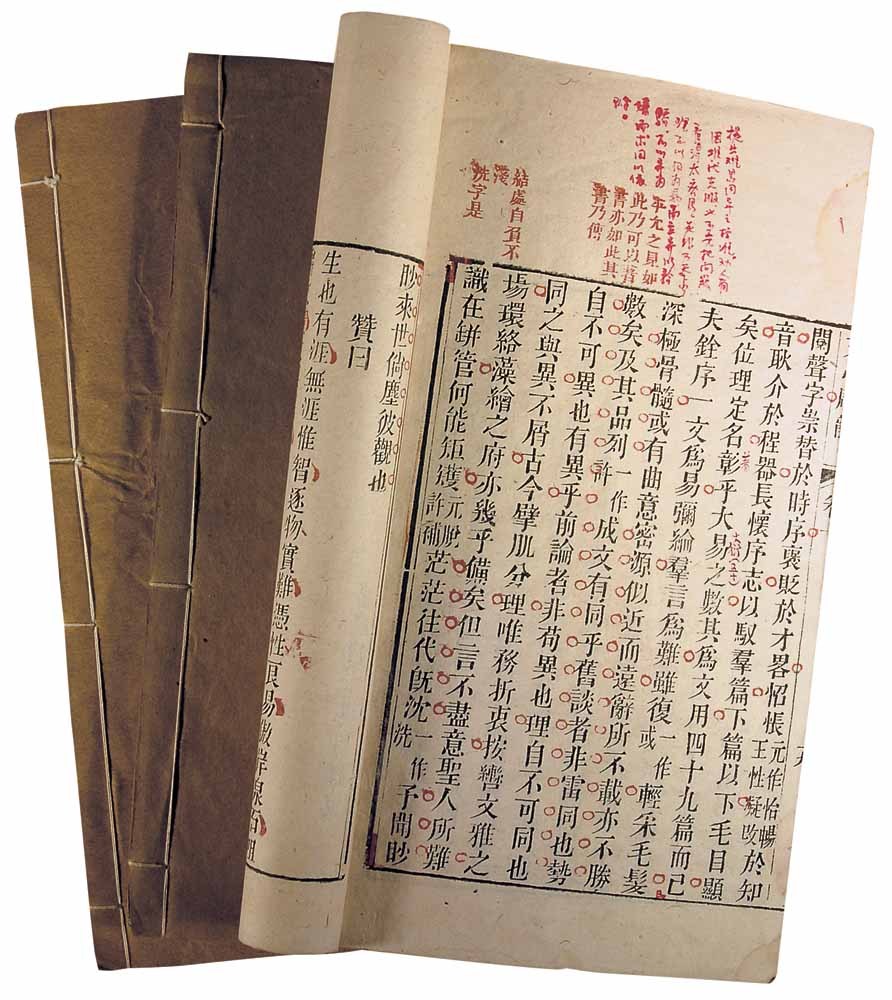 平允之見如
此乃可以著
書亦如此其
書乃傳
結處自負不
淺
洗字是
閱聲字崇替於時序褒貶於才畧怊悵元作怡暢王性凝改於知
音耿介於程器長懷序志以馭羣篇下篇以下毛目顯
矣位理定名彰乎大易之數其爲文用四十九篇而已
夫銓序一文爲易彌綸羣言爲難雖復一作或輕采毛髮
深極骨髓或有曲意密源似近而遠辭所不載亦不勝
數矣及其品列一作許成文有同乎舊談者非雷同也勢
自不可異也有異乎前論者非苟異也理自不可同也
同之與異不屑古今擘肌分理唯務折衷按轡文雅之
場環絡藻繪之府亦幾乎備矣但言不盡意聖人所難
識在缾管何能矩矱元脫許補茫茫往代旣沈一作洗予聞眇
眇來世倘塵彼觀也
贊曰
生也有涯無涯惟智逐物實難憑性良易傲岸泉石咀